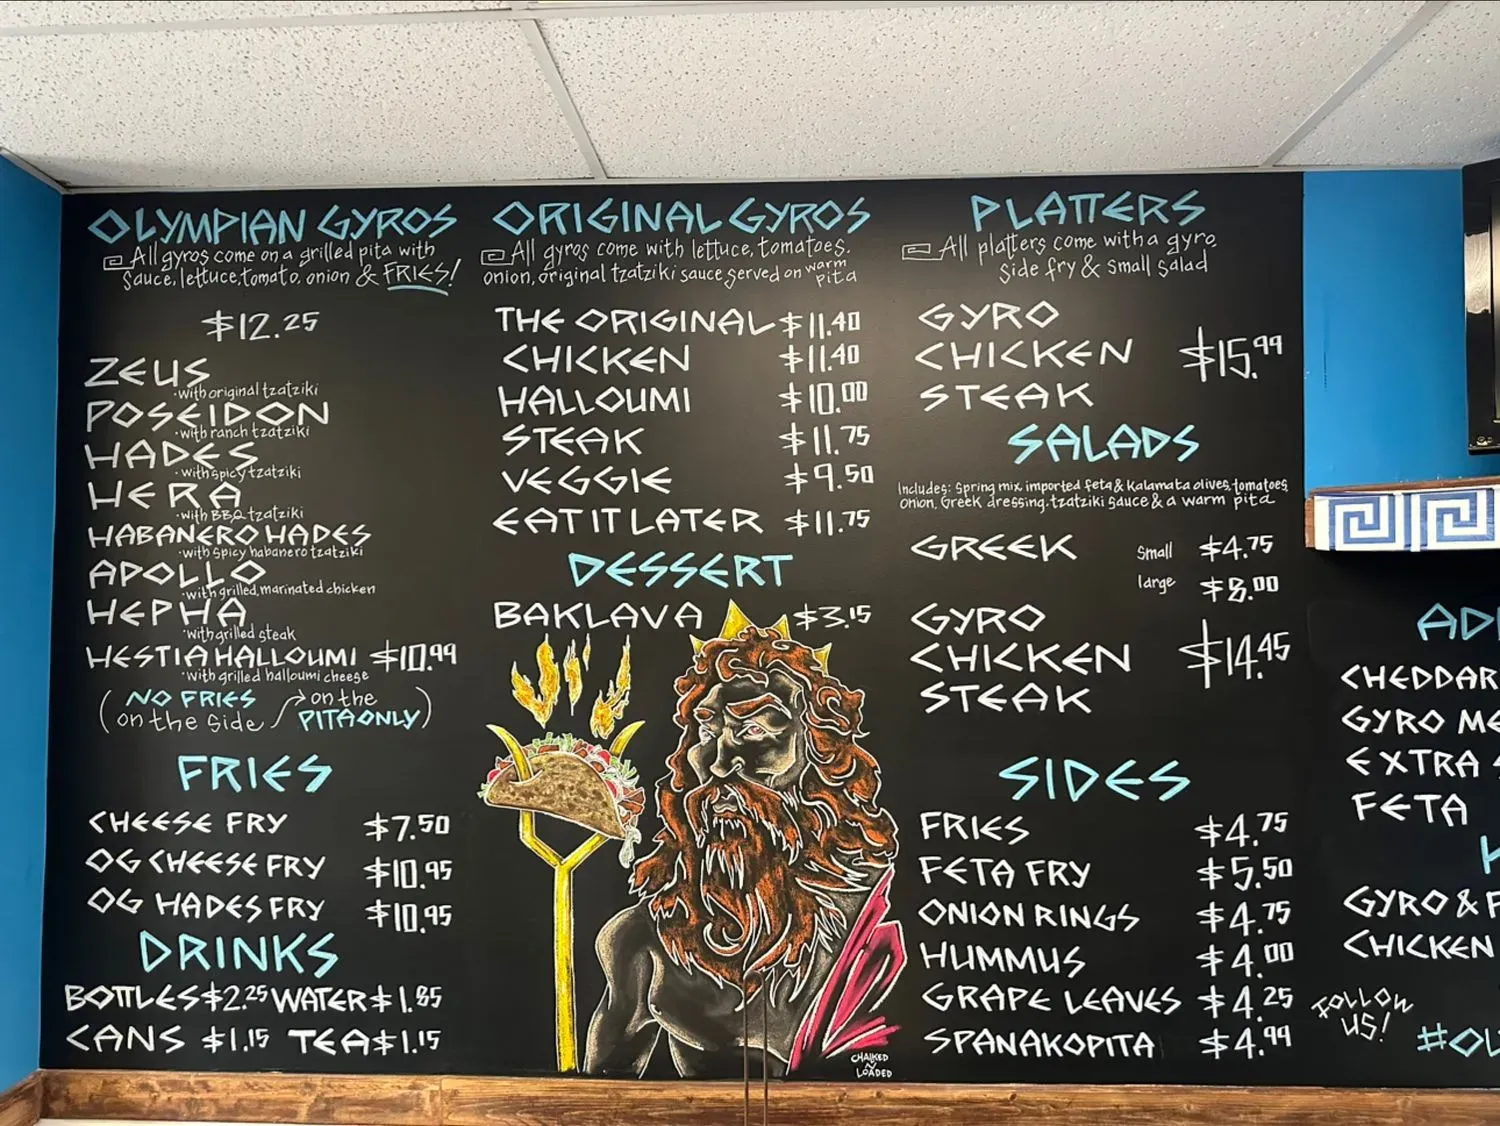 OLYMPIAN GYROS
All gyros come on a grilled pita with
sauce, lettuce, tomato, onion & FRIES!
$12.25
ZEUS
·with original tzatziki
POSEIDON
·with ranch tzatziki
HADES
·with spicy tzatziki
HERA
·with BBQ tzatziki
HABANERO HADES
·with spicy habanero tzatziki
APOLLO
·with grilled, marinated chicken
HEPHA
·with grilled steak
HESTIA HALLOUMI $10.99
·with grilled halloumi cheese
(NO FRIES on the side → on the PITA ONLY)
FRIES
CHEESE FRY $7.50
OG CHEESE FRY $10.95
OG HADES FRY $10.95
DRINKS
BOTTLES $2.25 WATER $1.85
CANS $1.15 TEA $1.15
ORIGINAL GYROS
All gyros come with lettuce, tomatoes,
onion, original tzatziki sauce served on warm pita
THE ORIGINAL $11.40
CHICKEN $11.40
HALLOUMI $10.00
STEAK $11.75
VEGGIE $9.50
EAT IT LATER $11.75
DESSERT
BAKLAVA $3.15
CHALKED N LOADED
PLATTERS
All platters come with a gyro,
side fry & small salad
GYRO
CHICKEN $15.99
STEAK
SALADS
Includes: Spring mix, imported feta & Kalamata olives, tomatoes,
onion, Greek dressing, tzatziki sauce & a warm pita
GREEK small $4.75
large $8.00
GYRO
CHICKEN $14.45
STEAK
SIDES
FRIES $4.75
FETA FRY $5.50
ONION RINGS $4.75
HUMMUS $4.00
GRAPE LEAVES $4.25
SPANAKOPITA $4.99
AD
CHEDDAR
GYRO ME
EXTRA
FETA
GYRO & F
CHICKEN
FOLLOW
US!
#OL